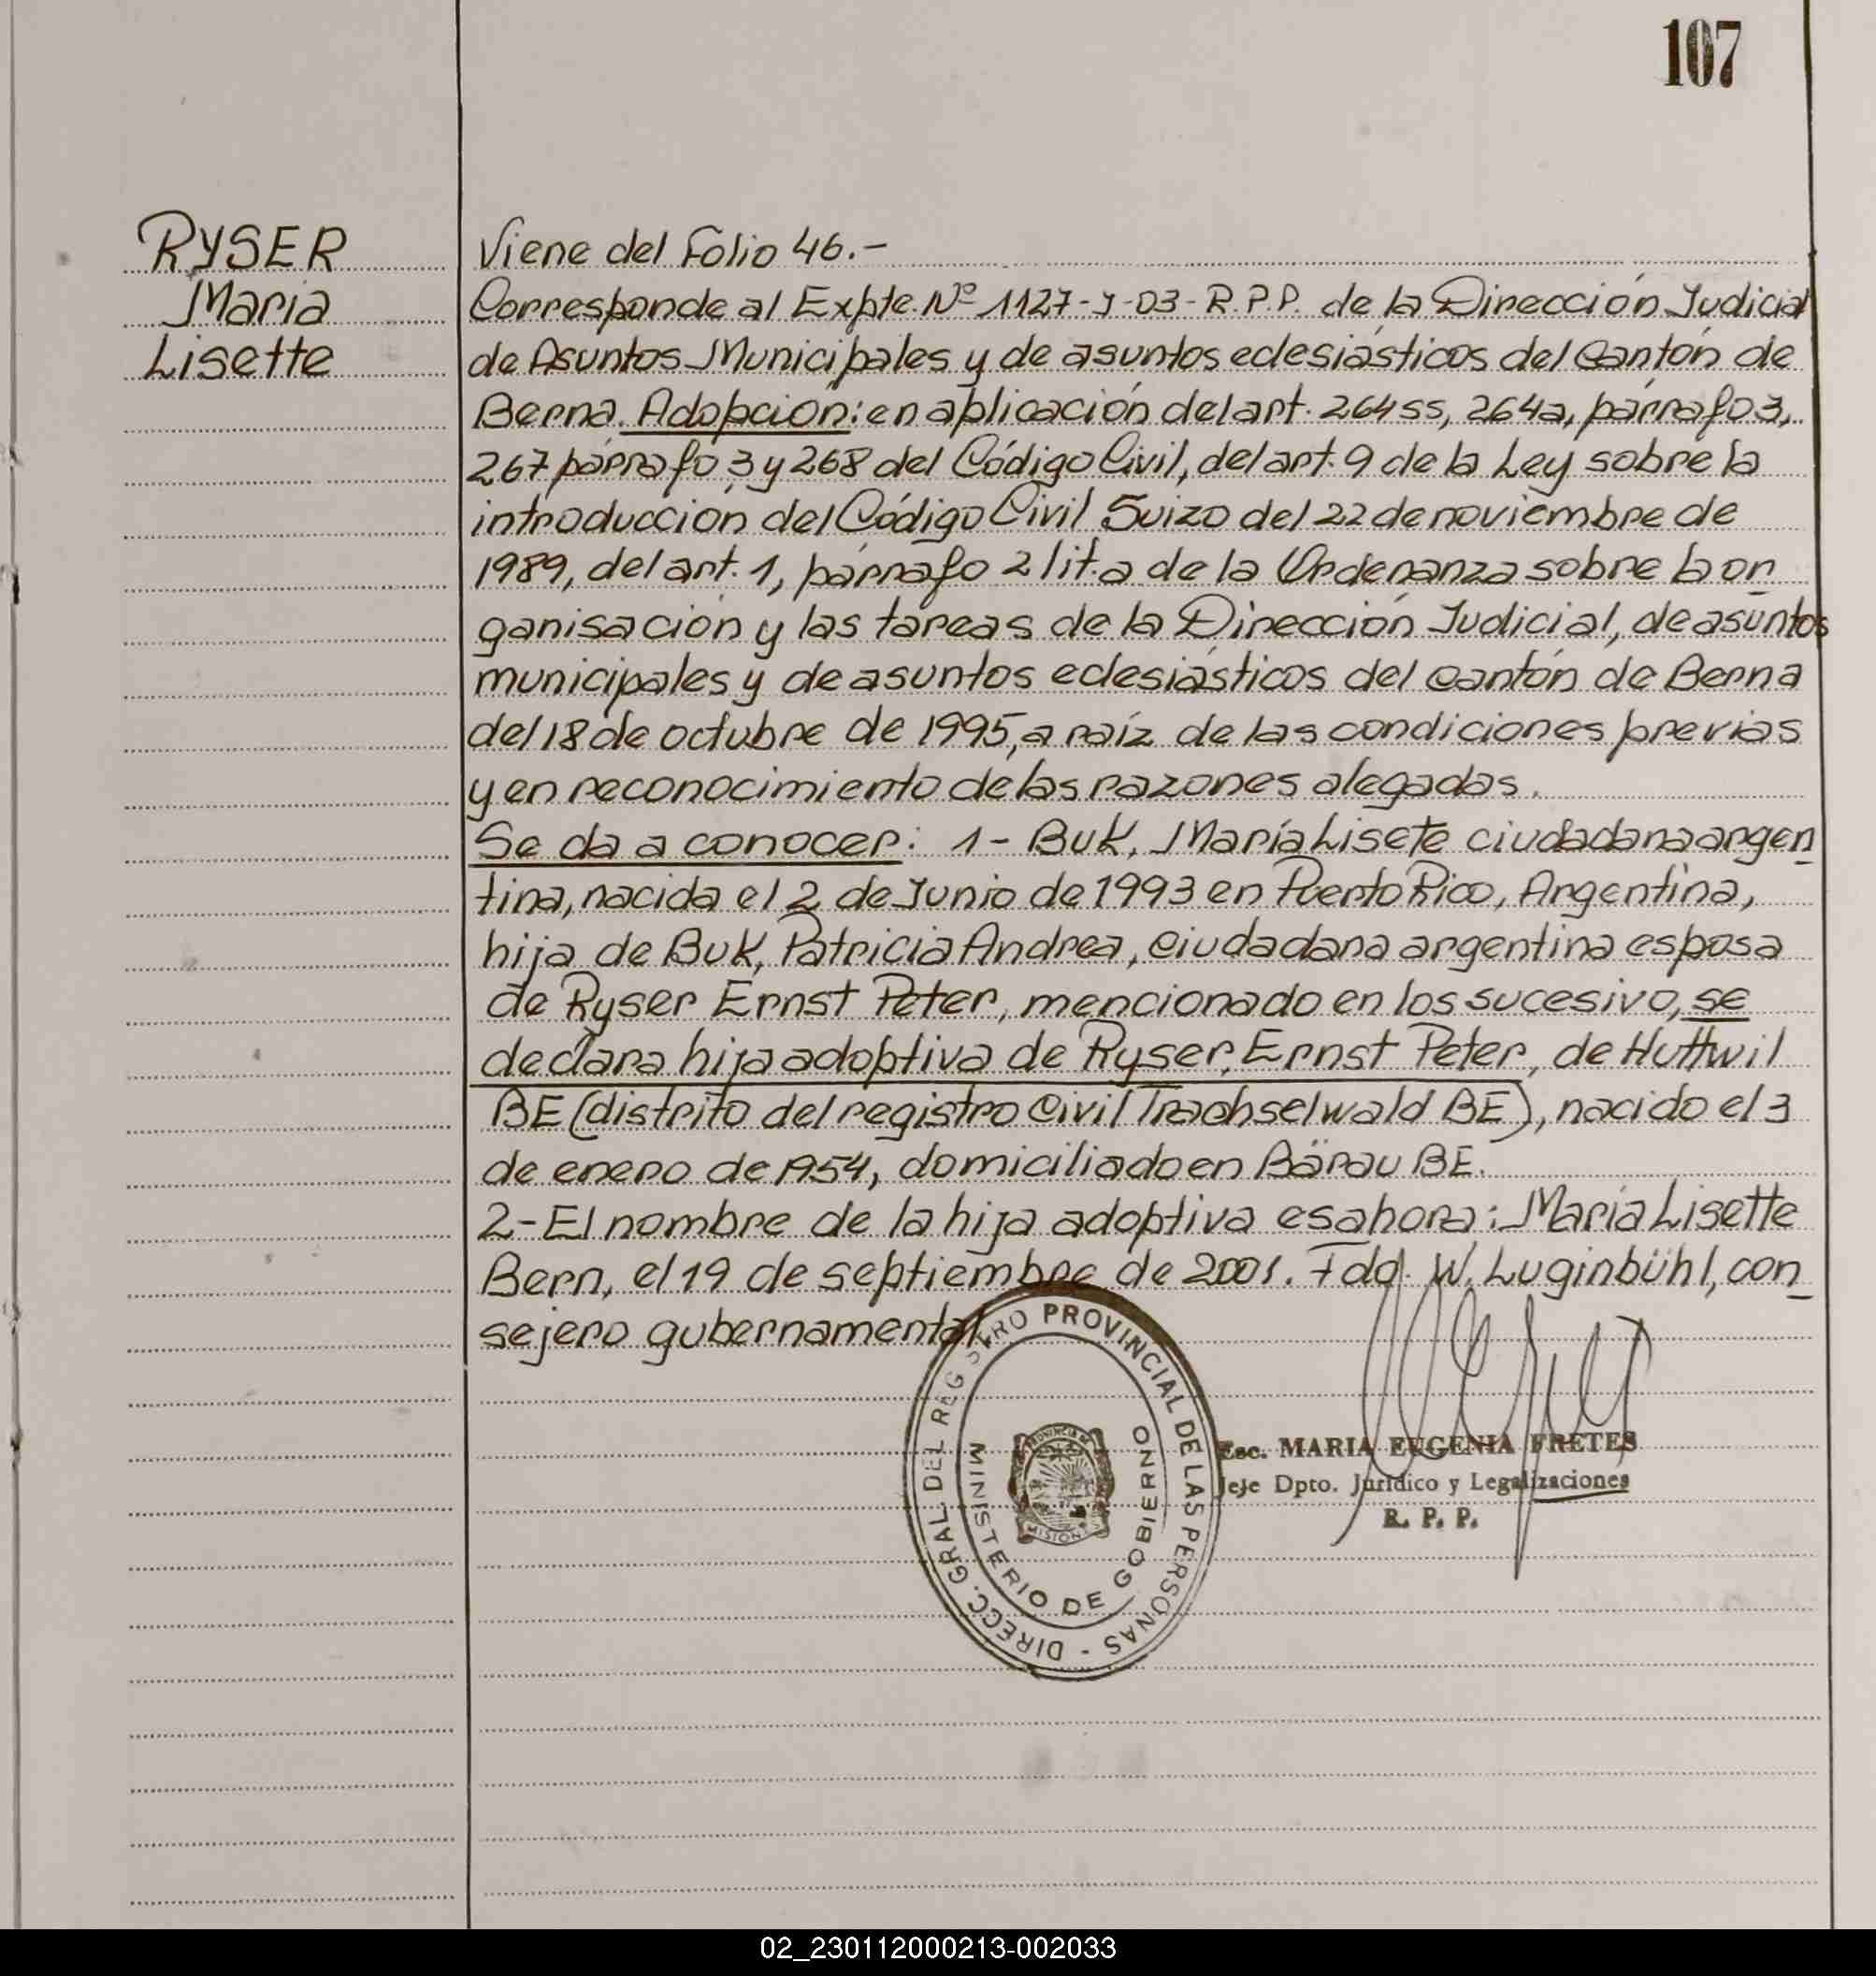 107
RYSER
Maria
Lisette
Viene del Folio 46.-
Corresponde al Expte. Nº 1127-J-03-R.P.P. de la Dirección Judicial
de Asuntos Municipales y de asuntos eclesiásticos del Cantón de
Berna. Adopción: en aplicación del art. 264 ss, 264a, párrafo 3,
267 párrafo 3 y 268 del Código Civil, del art. 9 de la Ley sobre la
introducción del Código Civil Suizo del 22 de noviembre de
1989, del art. 1, párrafo 2 lit. a de la Ordenanza sobre la or
ganisación y las tareas de la Dirección Judicial, de asuntos
municipales y de asuntos eclesiásticos del cantón de Berna
del 18 de octubre de 1995, a raíz de las condiciones previas
y en reconocimiento de las razones alegadas.
Se da a conocer: 1- Buk, María Lisete ciudadana argen
tina, nacida el 2 de Junio de 1993 en Puerto Rico, Argentina,
hija de Buk, Patricia Andrea, ciudadana argentina esposa
de Ryser Ernst Peter, mencionado en los sucesivo, se
declara hija adoptiva de Ryser, Ernst Peter, de Huttwil
BE (distrito del registro Civil Trachselwald BE), nacido el 3
de enero de 1954, domiciliado en Bärau BE.
2- El nombre de la hija adoptiva es ahora: María Lisette
Bern, el 19 de septiembre de 2001. Fdo. W. Luginbühl, con
sejero gubernamental.
DIRECC. GRAL DEL REGISTRO PROVINCIAL DE LAS PERSONAS -
MINISTERIO DE GOBIERNO
PROVINCIA DE
MISIONES
Esc. MARIA EUGENIA FRETES
Jefe Dpto. Jurídico y Legalizaciones
R. P. P.
02_230112000213-002033